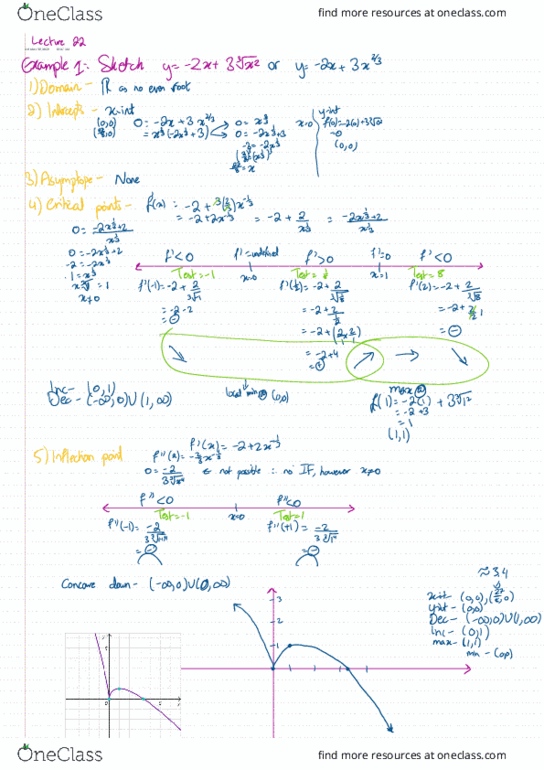 OneClass
find more resources at oneclass.com
Lecture 22
Example 1: Sketch y = -2x + 3∛x² or y = -2x + 3x^(2/3)
1) Domain - ℝ as no even root
2) Intercepts - x-int
(0,0) 0 = -2x + 3x^(2/3)
= x^(2/3)(-2x^(1/3) + 3)
0 = x^(2/3)
0 = -2x^(1/3) + 3
-3 = -2x^(1/3)
= x
y-int
x=0 f(0) = -2(0) + 3∛0
=0
(0,0)
3) Asymptope - None
4) Critical points - f'(x) = -2 + 3(2/3)x^(-1/3)
= -2 + 2x^(-1/3) = -2 + 2/x^(1/3) = (-2x^(1/3) + 2)/x^(1/3)
0 = (-2x^(1/3) + 2)/x^(1/3)
0 = -2x^(1/3) + 2
-2 = -2x^(1/3)
1 = x^(1/3)
x = 1
x ≠ 0
f' < 0 f' = undefined f' > 0 f' = 0 f' < 0
Test = -1 x=0 Test = x=1 Test = 8
f'(-1) = -2 + 2/∛-1
= -2 - 2
= ⊖
= -2 + 4
= ⊕
f'(2) = -2 + 2/∛8
= -2 +
= ⊖
Inc - (0,1)
Dec - (-∞,0)∪(1,∞)
local min @ (0,0)
max @
f(1) = -2(1) + 3∛1²
= -2 + 3
= 1
(1,1)
5) Inflection point
f'(x) = -2 + 2x^(-1/3)
f''(x) = -2/3 x^(-4/3)
0 = -2/(3∛x⁴) ← not possible ∴ no IF, however x≠0
f'' < 0 f'' < 0
Test = -1 x=0 Test = 1
f''(-1) = -2/(3∛-1⁴)
= ⊖
f''(+1) = -2/(3∛1⁴)
= ⊖
Concave down - (-∞,0)∪(0,∞)
≈ 3.4
x-int - (0,0),(27/8,0)
y-int - (0,0)
Dec - (-∞,0)∪(1,∞)
Inc - (0,1)
max - (1,1)
min - (0,0)
3
2
1
OneClass
find more resources at oneclass.com